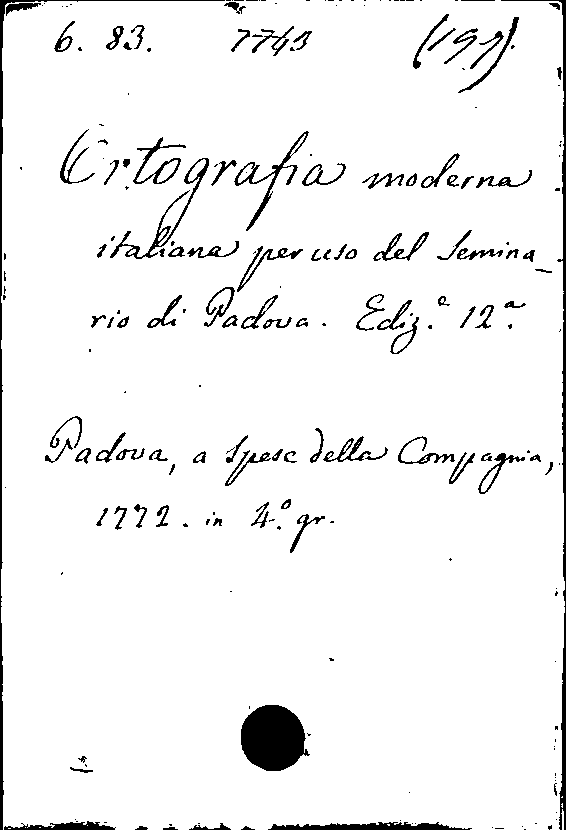 6. 83. 7743 (197).
Ortografia moderna
italiana per uso del Semina_
rio di Padova. Ediz.e 12a.
Padova, a Spese della Compagnia,
1772. in 4.o gr.